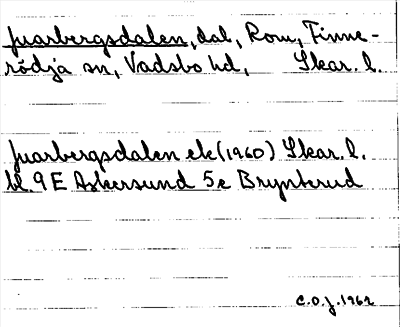 Juarbergsdalen, dal, Rom, Finne-
rödja sn, Vadsbo hd, Skar. l.
Juarbergsdalen ek (1960) Skar. l.
bl. 9E Askersund 5e Brynterud
C.O.J. 1962